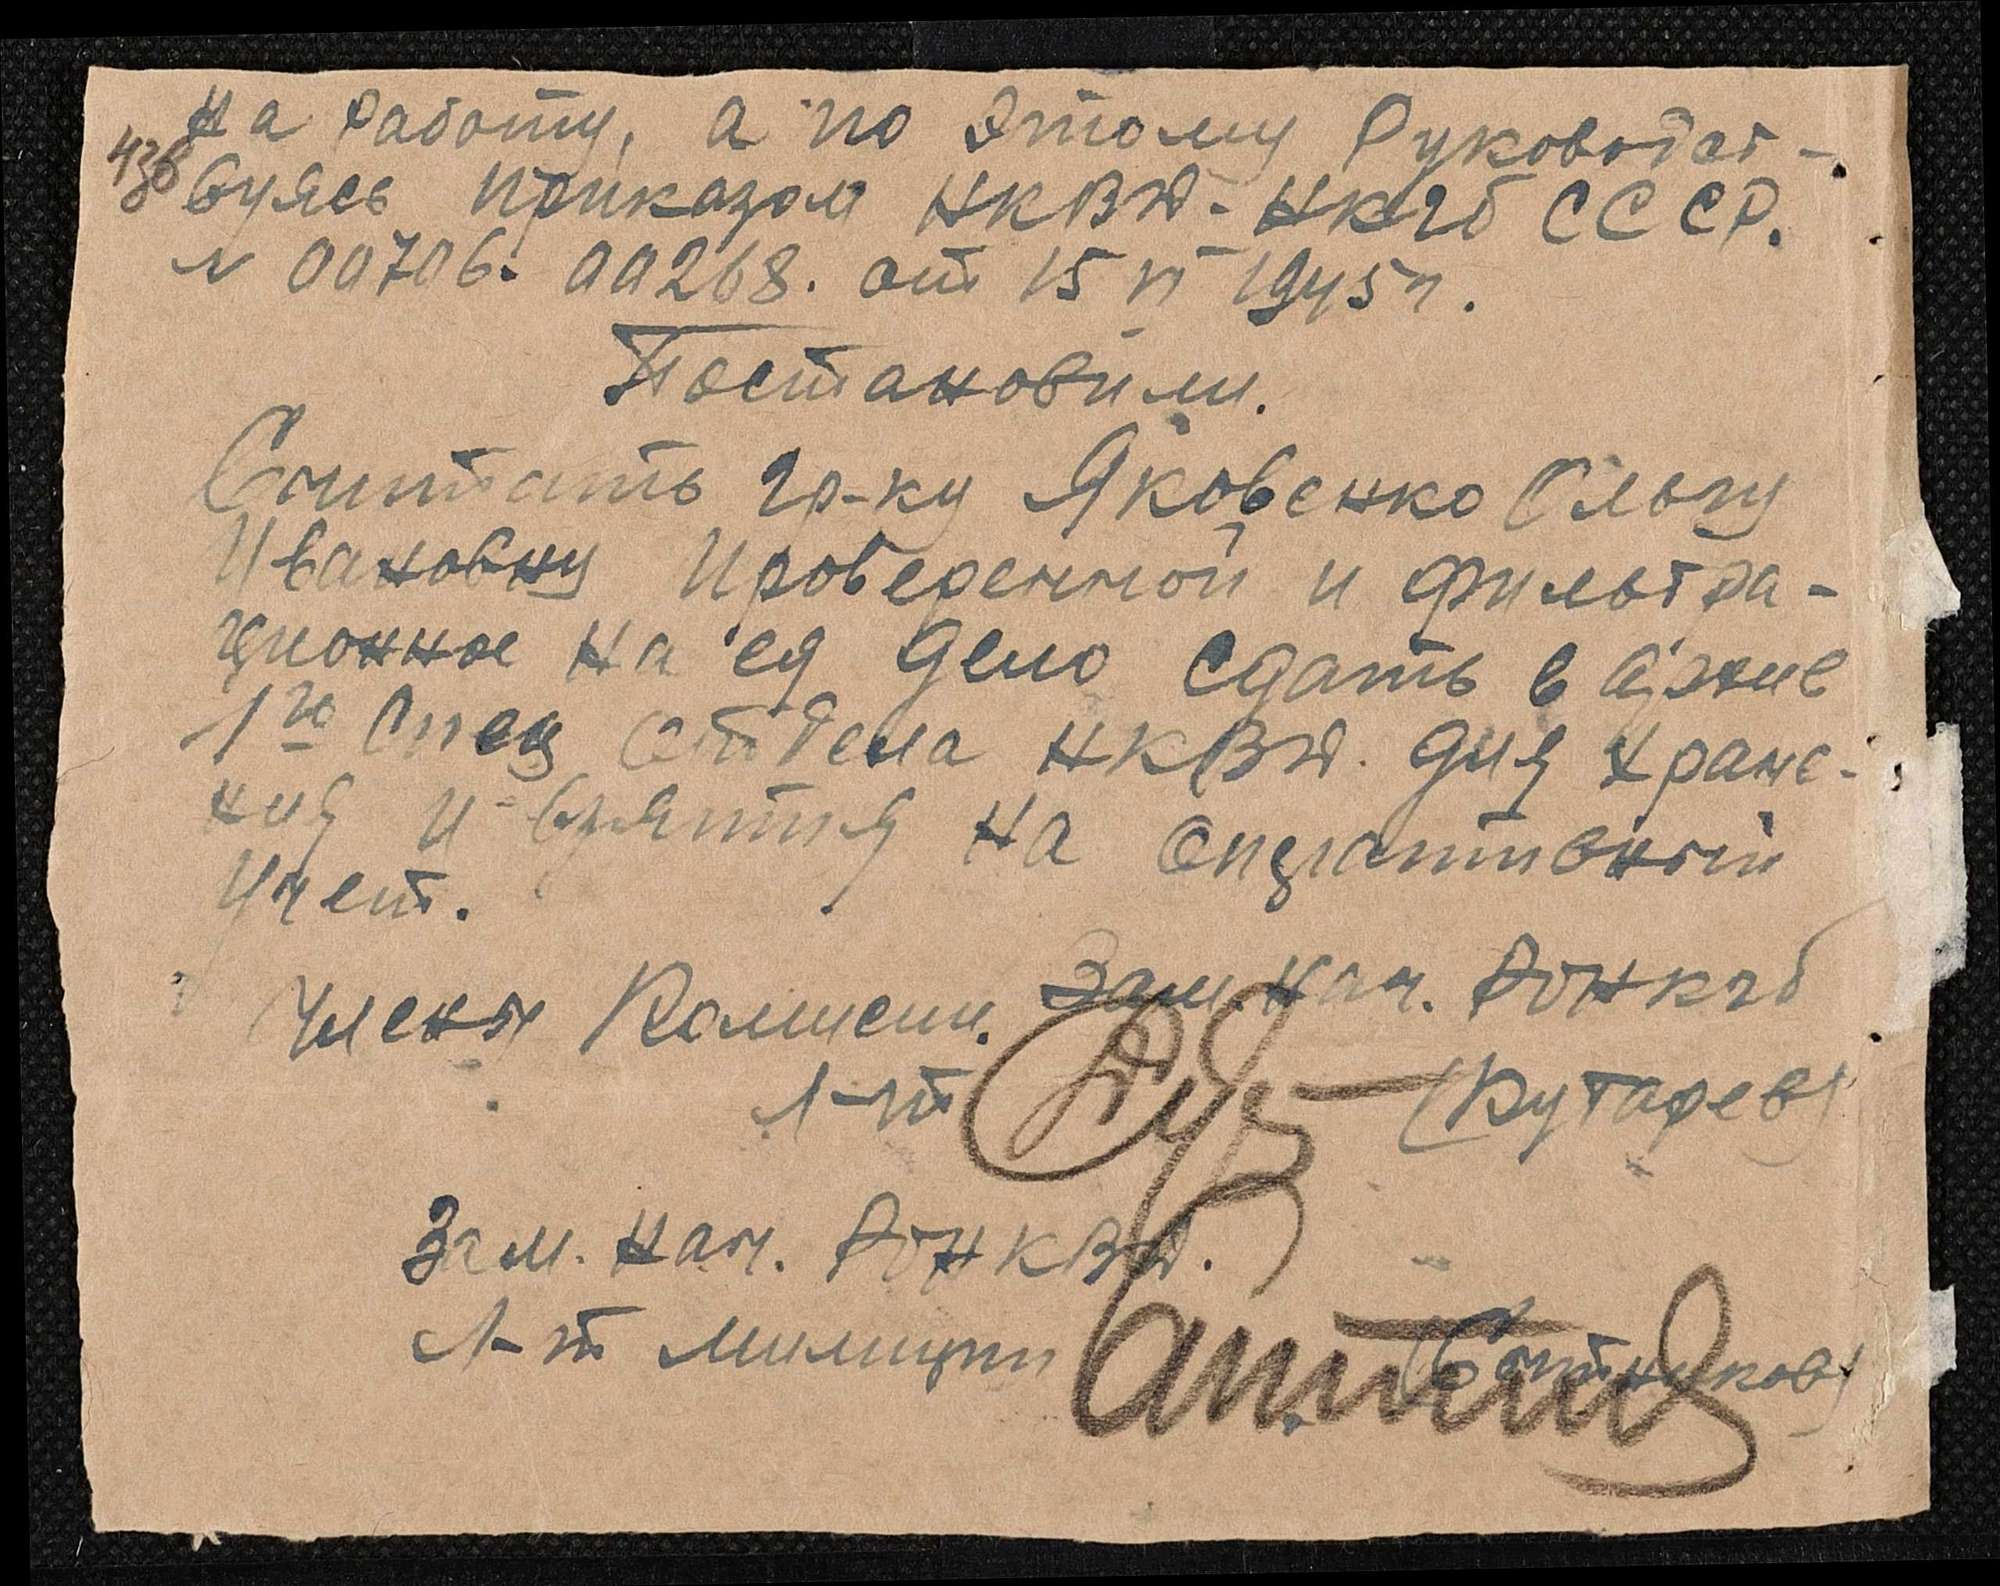 на работу, а по этому руководст-
43в
вуясь приказом НКВД-НКГБ СССР.
№ 00706. 00268. от 15 VI 1945 г.
Постановили.
Считать гр-ку Яковенко Ольгу
Ивановну проверенной и фильтра-
ционное на её дело сдать в архив
1го Спец отдела НКВД. для хране-
ния и взятия на опративный
учет.
Члены Комисии. Зам. нач. РОНКГБ
Л-т (Кутарев)
Зам. нач. РОНКВД.
Л-т милиции